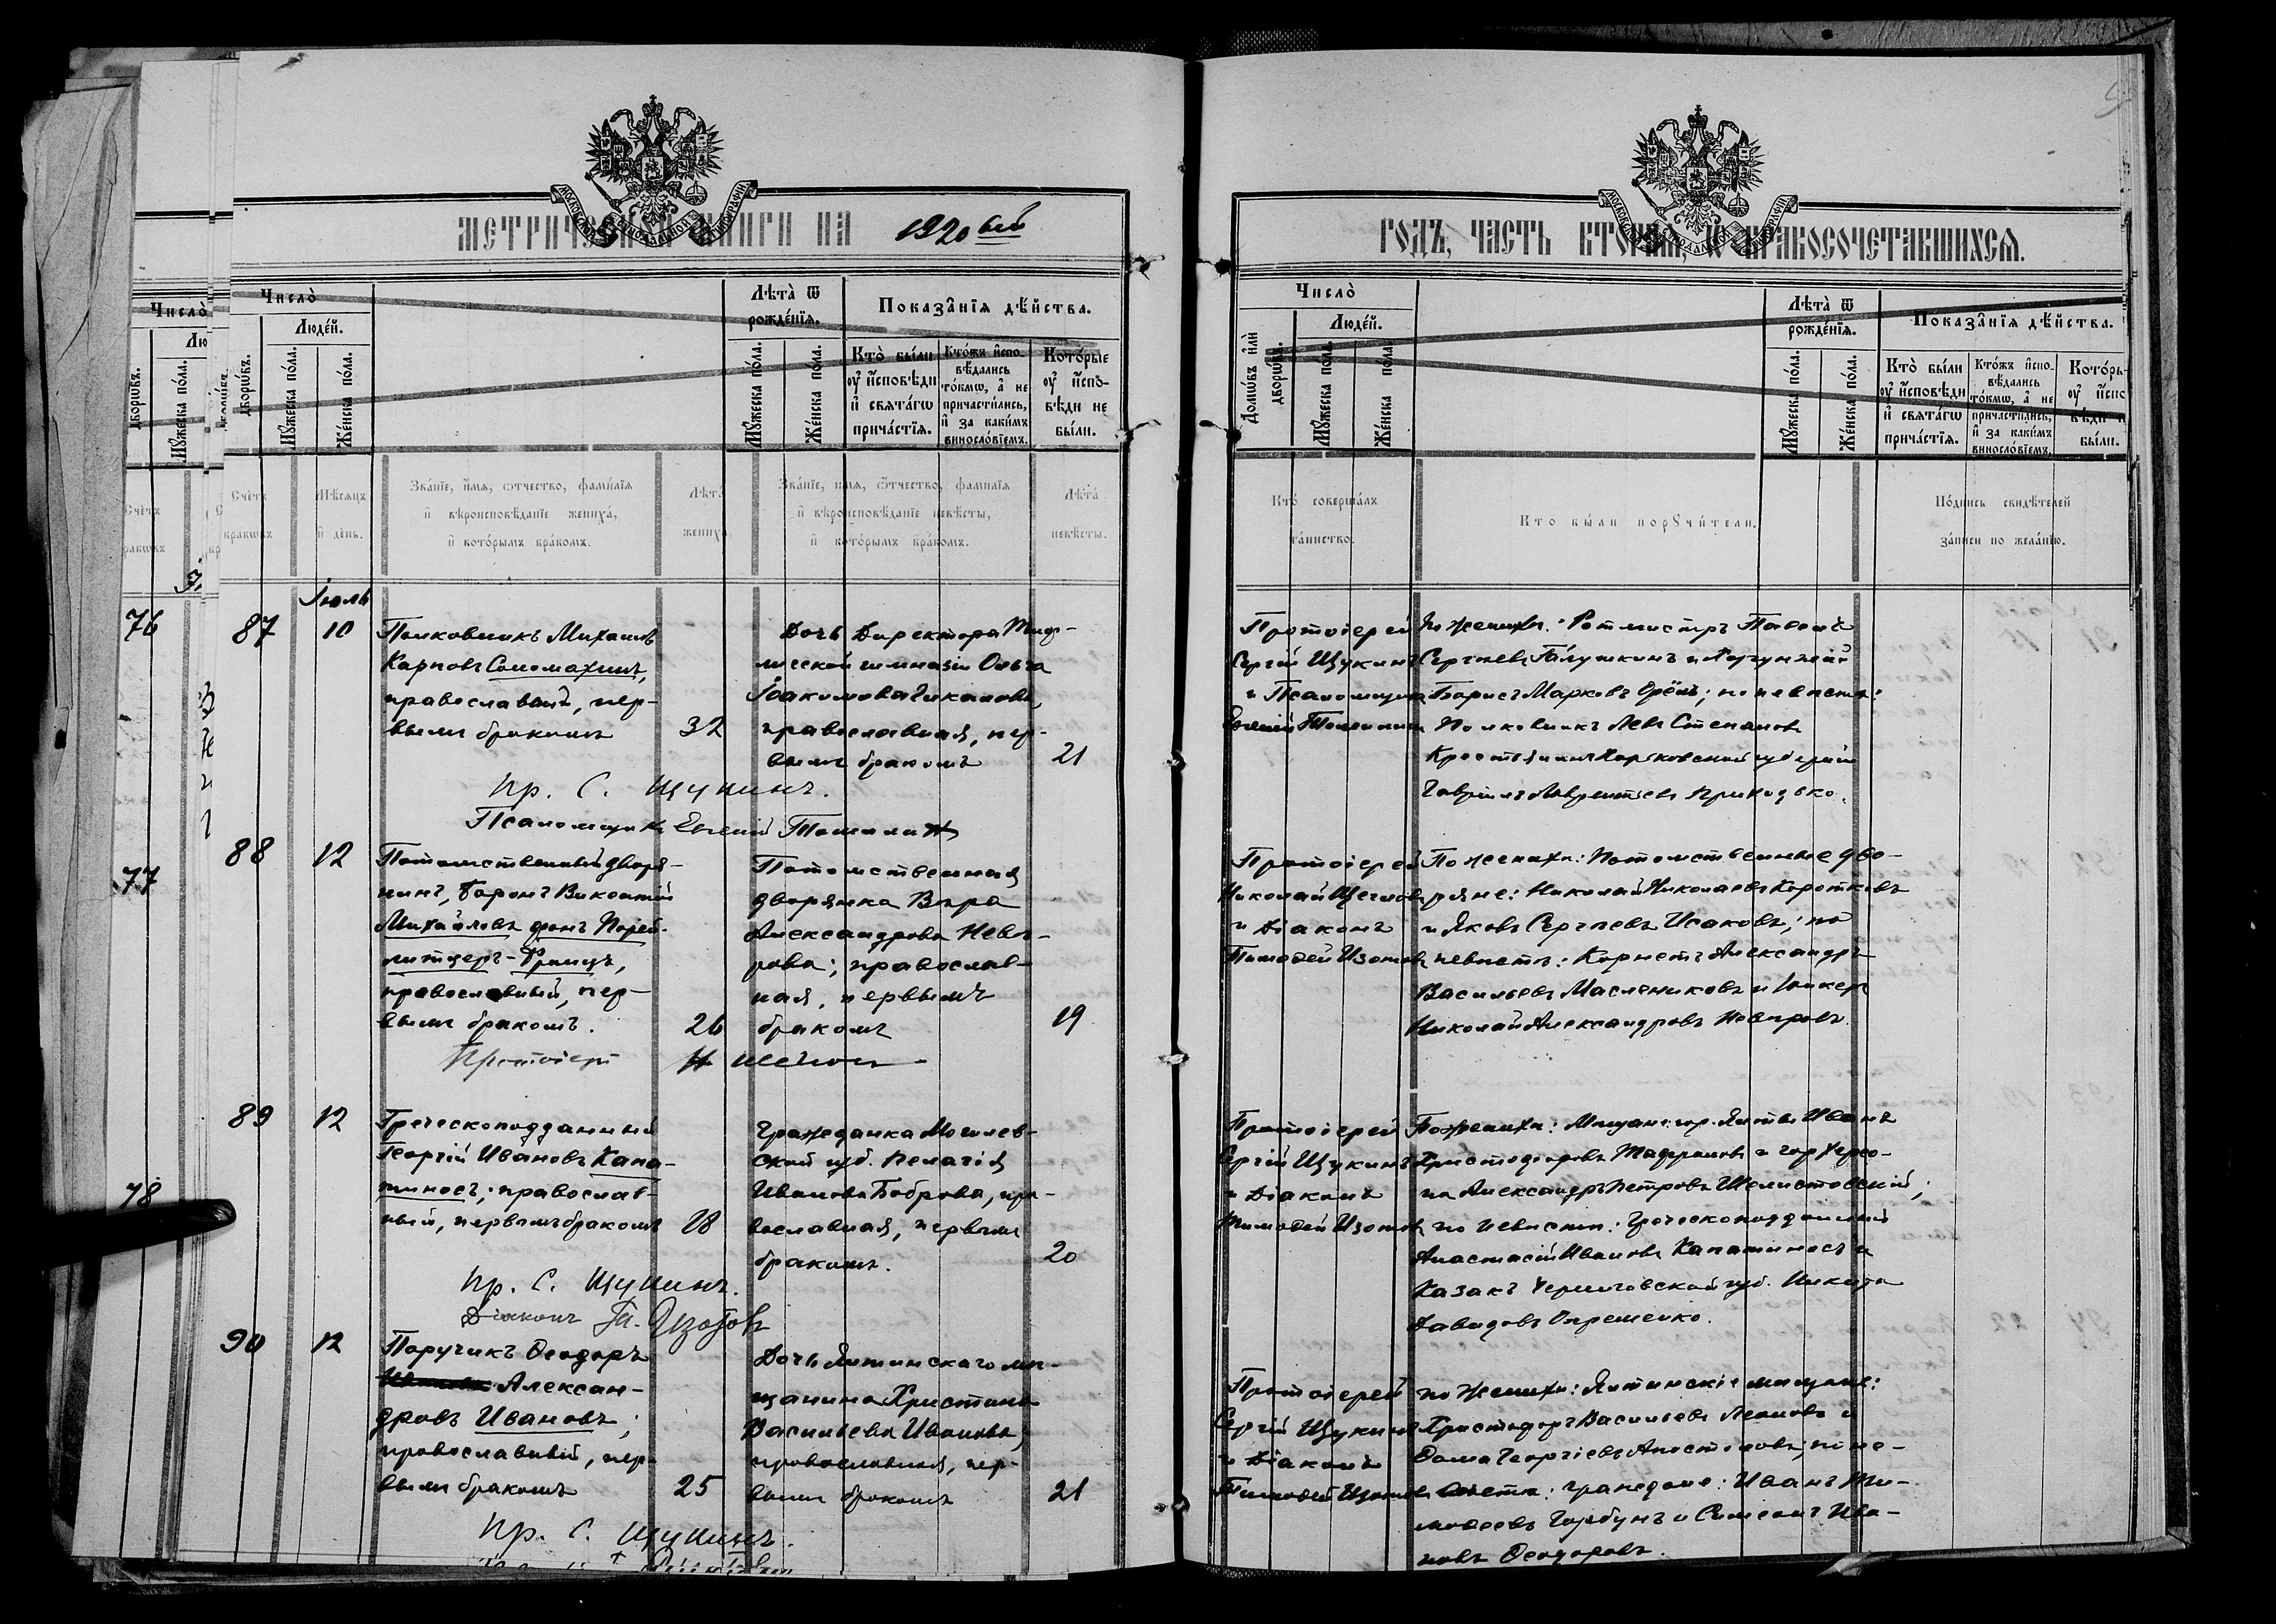 МЕТРИЧЕСКІЯ КНИГИ НА 1920 ый
Число̀
Люде́й.
дворѡвъ.
Мꙋ́жеска по́ла.
Же́нска по́ла.
Лѣта̀ ѿ
рожде́нїя.
Мꙋ́жеска по́ла.
Же́нска по́ла.
Показа̑нїя дѣ́йства.
Кто̀ бы́ли
оу҆ и҆сповѣди
и҆ свята́гѡ
прича́стїя.
Кто́жъ и҆спо-
вѣ́дались
то́кмѡ, а҆ не
причасти́лись,
и҆ за каки́мъ
винносло́вїемъ.
Кото́рые
оу҆ и҆спо-
вѣди не
бы́ли.
Сче́тъ
бракѡвъ
Мѣ́сяцъ
и҆ де́нь.
Зва́нїе, и҆́мя, ѻ҆́тчество, фами́лїя
и҆ вѣроисповѣ́данїе жениха̀,
и҆ кото́рымъ бра́комъ.
Лѣта̀
жениха̀.
Зва́нїе, и҆́мя, ѻ҆́тчество, фами́лїя
и҆ вѣроисповѣ́данїе невѣ́сты,
и҆ кото́рымъ бра́комъ.
Лѣта̀
невѣ́сты.
76
77
78
Іюль
87 10
Полковникъ Михаилъ
Карповъ Соломахинъ,
православный, пер-
вымъ бракомъ 32
Дочь Директора Тиф-
лисской гимназіи Ольга
Іоакимова Чикалова,
православная, пер-
вымъ бракомъ 21
Пр. С. Щукинъ.
Псаломщикъ Евгеній
88 12
Потомственный дворя-
нинъ, Баронъ Викентій
Михайловъ фонъ
православный, пер-
вымъ бракомъ. 26
Потомственная
дворянка Вѣра
Александрова Невѣ-
рова; православ-
ная, первымъ
бракомъ 19
Протоіерей Н Щегловъ
89 12
Греческоподданный
Георгій Ивановъ Капа-
тиносъ; православ-
ный, первымъ бракомъ 28
Гражданка Могилев-
ской губ. Пелагія
Иванова Боброва, пра-
вославная, первымъ
бракомъ. 20
Пр. С. Щукинъ.
Діаконъ Т. Изотовъ
90 12
Поручикъ Ѳеодоръ
Алексан-
дровъ Ивановъ;
православный, пер-
вымъ бракомъ 25
Дочь Ялтинскаго мѣ-
щанина Христина
Васильева Иванова,
православная, пер-
вымъ бракомъ 21
Пр. С. Щукинъ.
ГОДЪ, ЧАСТЬ ВТОРАЯ, Ѡ БРАКОСОЧЕТАВШИХСЯ.
Число̀
Домѡ́въ и҆лѝ
дворѡвъ.
Люде́й.
Мꙋ́жеска по́ла.
Же́нска по́ла.
Лѣта̀ ѿ
рожде́нїя.
Мꙋ́жеска по́ла.
Же́нска по́ла.
Показа̑нїя дѣ́йства.
Кто̀ бы́ли
оу҆ и҆сповѣди
и҆ свята́гѡ
прича́стїя.
Кто́жъ и҆спо-
вѣ́дались
то́кмѡ, а҆ не
причасти́лись,
и҆ за каки́мъ
винносло́вїемъ.
Кто̀ соверша́лъ
та́инство.
Кто̀ бы́ли порꙋчи́тели.
По́дпись свидѣ́телей
за́писи по жела́нїю.
Протоіерей
Сергій Щукинъ
и Псаломщикъ
Евгеній
По женихѣ: Ротмистръ Павелъ
Сергѣевъ Галушкинъ и Хорунжій
Борисъ Марковъ; по невѣстѣ:
Полковникъ Левъ Степановъ
Крестьянинъ Харьковской губерніи
Гавріилъ Лаврентьевъ Приходько.
Протоіерей
Николай Щегловъ
и Діаконъ
Тимоѳей Изотовъ
По женихѣ: Потомственные дво-
ряне: Николай Николаевъ Коротковъ
и Яковъ Сергѣевъ Исаковъ; по
невѣстѣ: Корнетъ Александръ
Васильевъ Маслениковъ и Юнкеръ
Николай Александровъ Невѣровъ.
Протоіерей
Сергій Щукинъ
и Діаконъ
Тимоѳей Изотовъ
По женихѣ: Мѣщане: гор. Ялты Иванъ
Христофоровъ и гор Херсо-
на Александръ Петровъ Шелистовскій;
по невѣстѣ: Греческоподданный
Анастасій Ивановъ Капатиносъ и
Казакъ Черниговской губ. Никита
Давидовъ Охрименко.
Протоіерей
Сергій Щукинъ
и Діаконъ
Тимоѳей Изотовъ
по женихѣ: Ялтинскіе мѣщане:
Христофоръ Васильевъ Леоновъ и
Ѳома Георгіевъ Апостоловъ; по не-
вѣстѣ: граждане: Иванъ Ти-
моѳеевъ Горбунъ и Симеонъ Ива-
новъ Ѳеодоровъ.